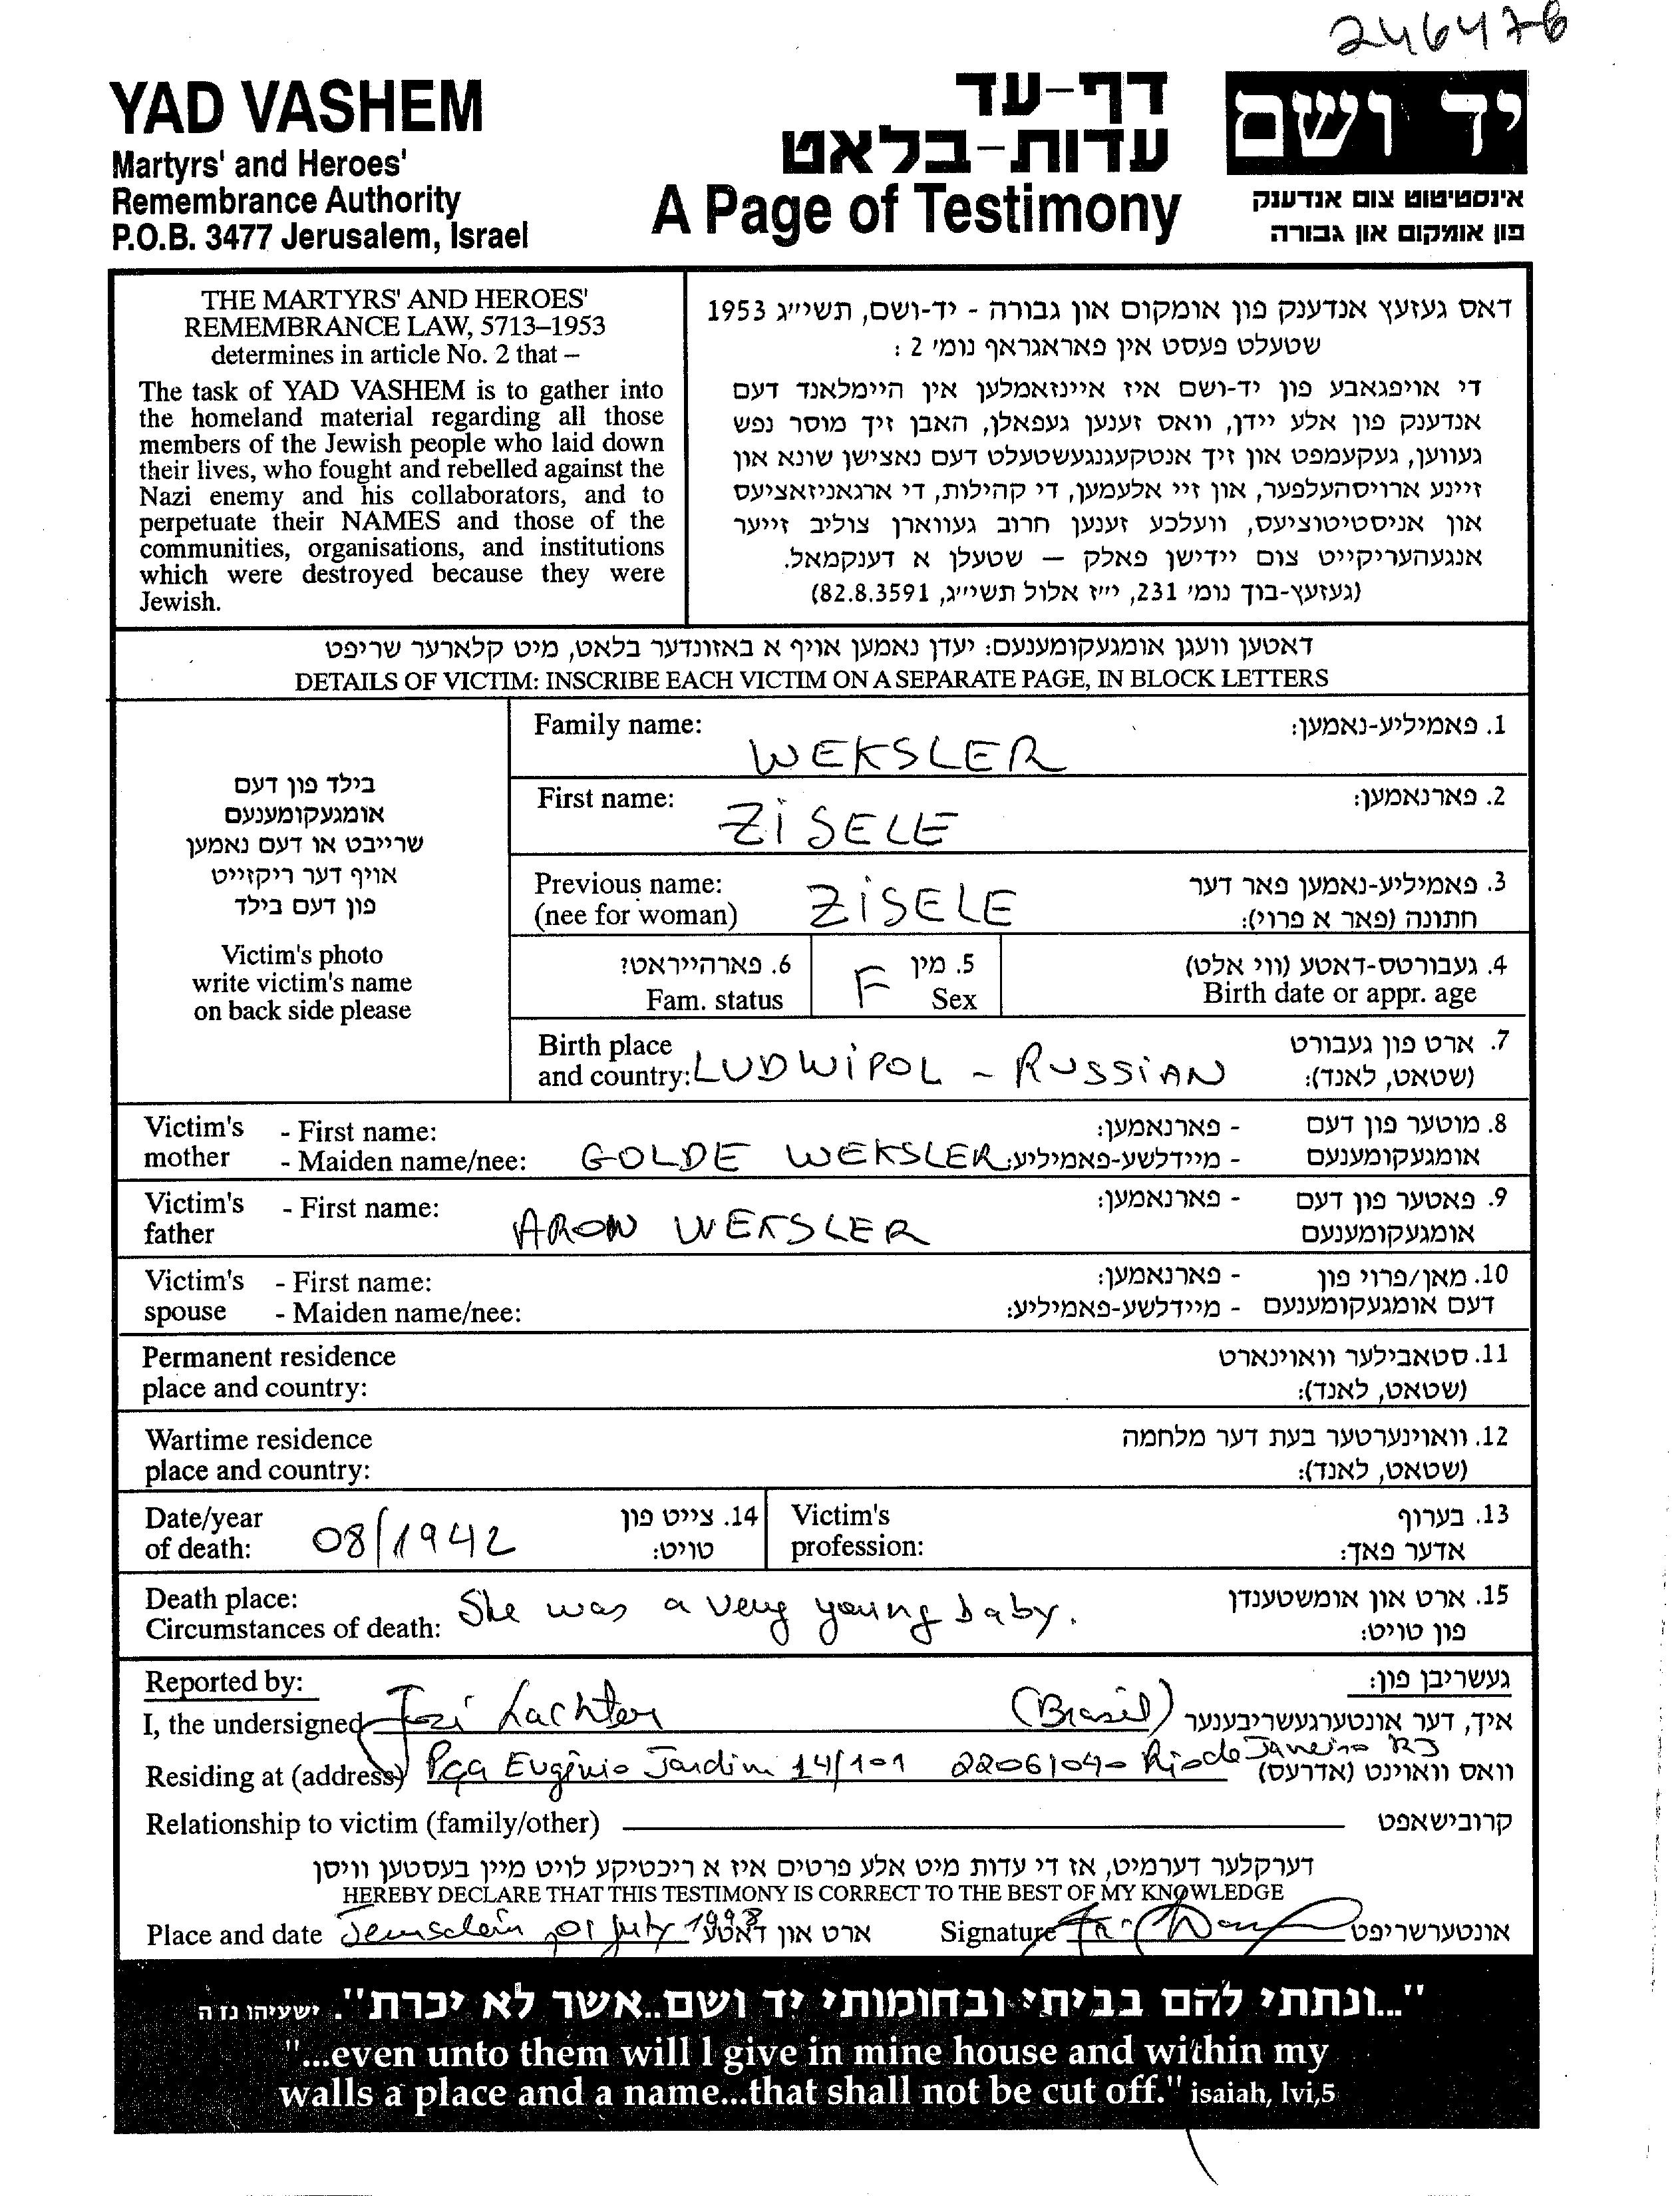 246476
YAD VASHEM
Martyrs' and Heroes'
Remembrance Authority
P.O.B. 3477 Jerusalem, Israel
דף-עד
עדות-בלאט
A Page of Testimony
יד ושם
אינסטיטוט צום אנדענק
פון אומקום און גבורה
THE MARTYRS' AND HEROES'
REMEMBRANCE LAW, 5713–1953
determines in article No. 2 that –
The task of YAD VASHEM is to gather into
the homeland material regarding all those
members of the Jewish people who laid down
their lives, who fought and rebelled against the
Nazi enemy and his collaborators, and to
perpetuate their NAMES and those of the
communities, organisations, and institutions
which were destroyed because they were
Jewish.
דאס געזעץ אנדענק פון אומקום און גבורה - יד-ושם, תשי״ג 1953
שטעלט פעסט אין פאראגראף נומ׳ 2 :
די אויפגאבע פון יד-ושם איז איינזאמלען אין היימלאנד דעם
אנדענק פון אלע יידן, וואס זענען געפאלן, האבן זיך מוסר נפש
געווען, געקעמפט און זיך אנטקעגנגעשטעלט דעם נאצישן שונא און
זיינע ארויסהעלפער, און זיי אלעמען, די קהילות, די ארגאניזאציעס
און אניסטיטוציעס, וועלכע זענען חרוב געווארן צוליב זייער
אנגעהעריקייט צום יידישן פאלק – שטעלן א דענקמאל.
(געזעץ-בוך נומ׳ 231, י״ז אלול תשי״ג, 82.8.3591)
דאטען וועגן אומגעקומענעם: יעדן נאמען אויף א באזונדער בלאט, מיט קלארער שריפט
DETAILS OF VICTIM: INSCRIBE EACH VICTIM ON A SEPARATE PAGE, IN BLOCK LETTERS
בילד פון דעם
אומגעקומענעם
שרייבט או דעם נאמען
אויף דער ריקזייט
פון דעם בילד
Victim's photo
write victim's name
on back side please
Family name: WEKSLER 1. פאמיליע-נאמען:
First name: ZISELE 2. פארנאמען:
Previous name: ZISELE 3. פאמיליע-נאמען פאר דער
(nee for woman) חתונה (פאר א פרוי):
6. פארהייראט? F 5. מין 4. געבורטס-דאטע (ווי אלט)
Fam. status Sex Birth date or appr. age
Birth place 7. ארט פון געבורט
and country: LUDWIPOL - RUSSIAN (שטאט, לאנד):
Victim's - First name: - פארנאמען: 8. מוטער פון דעם
mother - Maiden name/nee: GOLDE WEKSLER - מיידלשע-פאמיליע: אומגעקומענעם
Victim's - First name: - פארנאמען: 9. פאטער פון דעם
father ARON WEKSLER אומגעקומענעם
Victim's - First name: - פארנאמען: 10. מאן/פרוי פון
spouse - Maiden name/nee: - מיידלשע-פאמיליע: דעם אומגעקומענעם
Permanent residence 11. סטאבילער וואוינארט
place and country: (שטאט, לאנד):
Wartime residence 12. וואוינערטער בעת דער מלחמה
place and country: (שטאט, לאנד):
Date/year 14. צייט פון Victim's 13. בערוף
of death: 08/1942 טויט: profession: אדער פאך:
Death place: 15. ארט און אומשטענדן
Circumstances of death: She was a very young baby. פון טויט:
Reported by: געשריבן פון:
I, the undersigned Lachter (Brasil) איך, דער אונטערגעשריבענער
Residing at (address) Pça Eugênio Jardim 14/101 22061040 Rio de Janeiro RJ וואס וואוינט (אדרעס)
Relationship to victim (family/other) קרובישאפט
דערקלער דערמיט, אז די עדות מיט אלע פרטים איז א ריכטיקע לויט מיין בעסטען וויסן
HEREBY DECLARE THAT THIS TESTIMONY IS CORRECT TO THE BEST OF MY KNOWLEDGE
Place and date Jerusalein 01 july 1998 ארט און דאטע Signature אונטערשריפט
"...ונתתי להם בביתי ובחומותי יד ושם..אשר לא יכרת". ישעיהו נז ה
"...even unto them will I give in mine house and within my
walls a place and a name...that shall not be cut off." isaiah, lvi,5